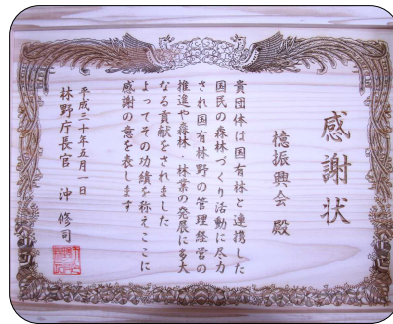 感謝状
檍振興会 殿
貴団体は国有林と連携した
国民の森林づくり活動に尽力
され国有林野の管理経営の
推進や森林・林業の発展に多大
なる貢献をされました
よってその功績を称えここに
感謝の意を表します
平成三十年五月一日
林野庁長官 沖 修司